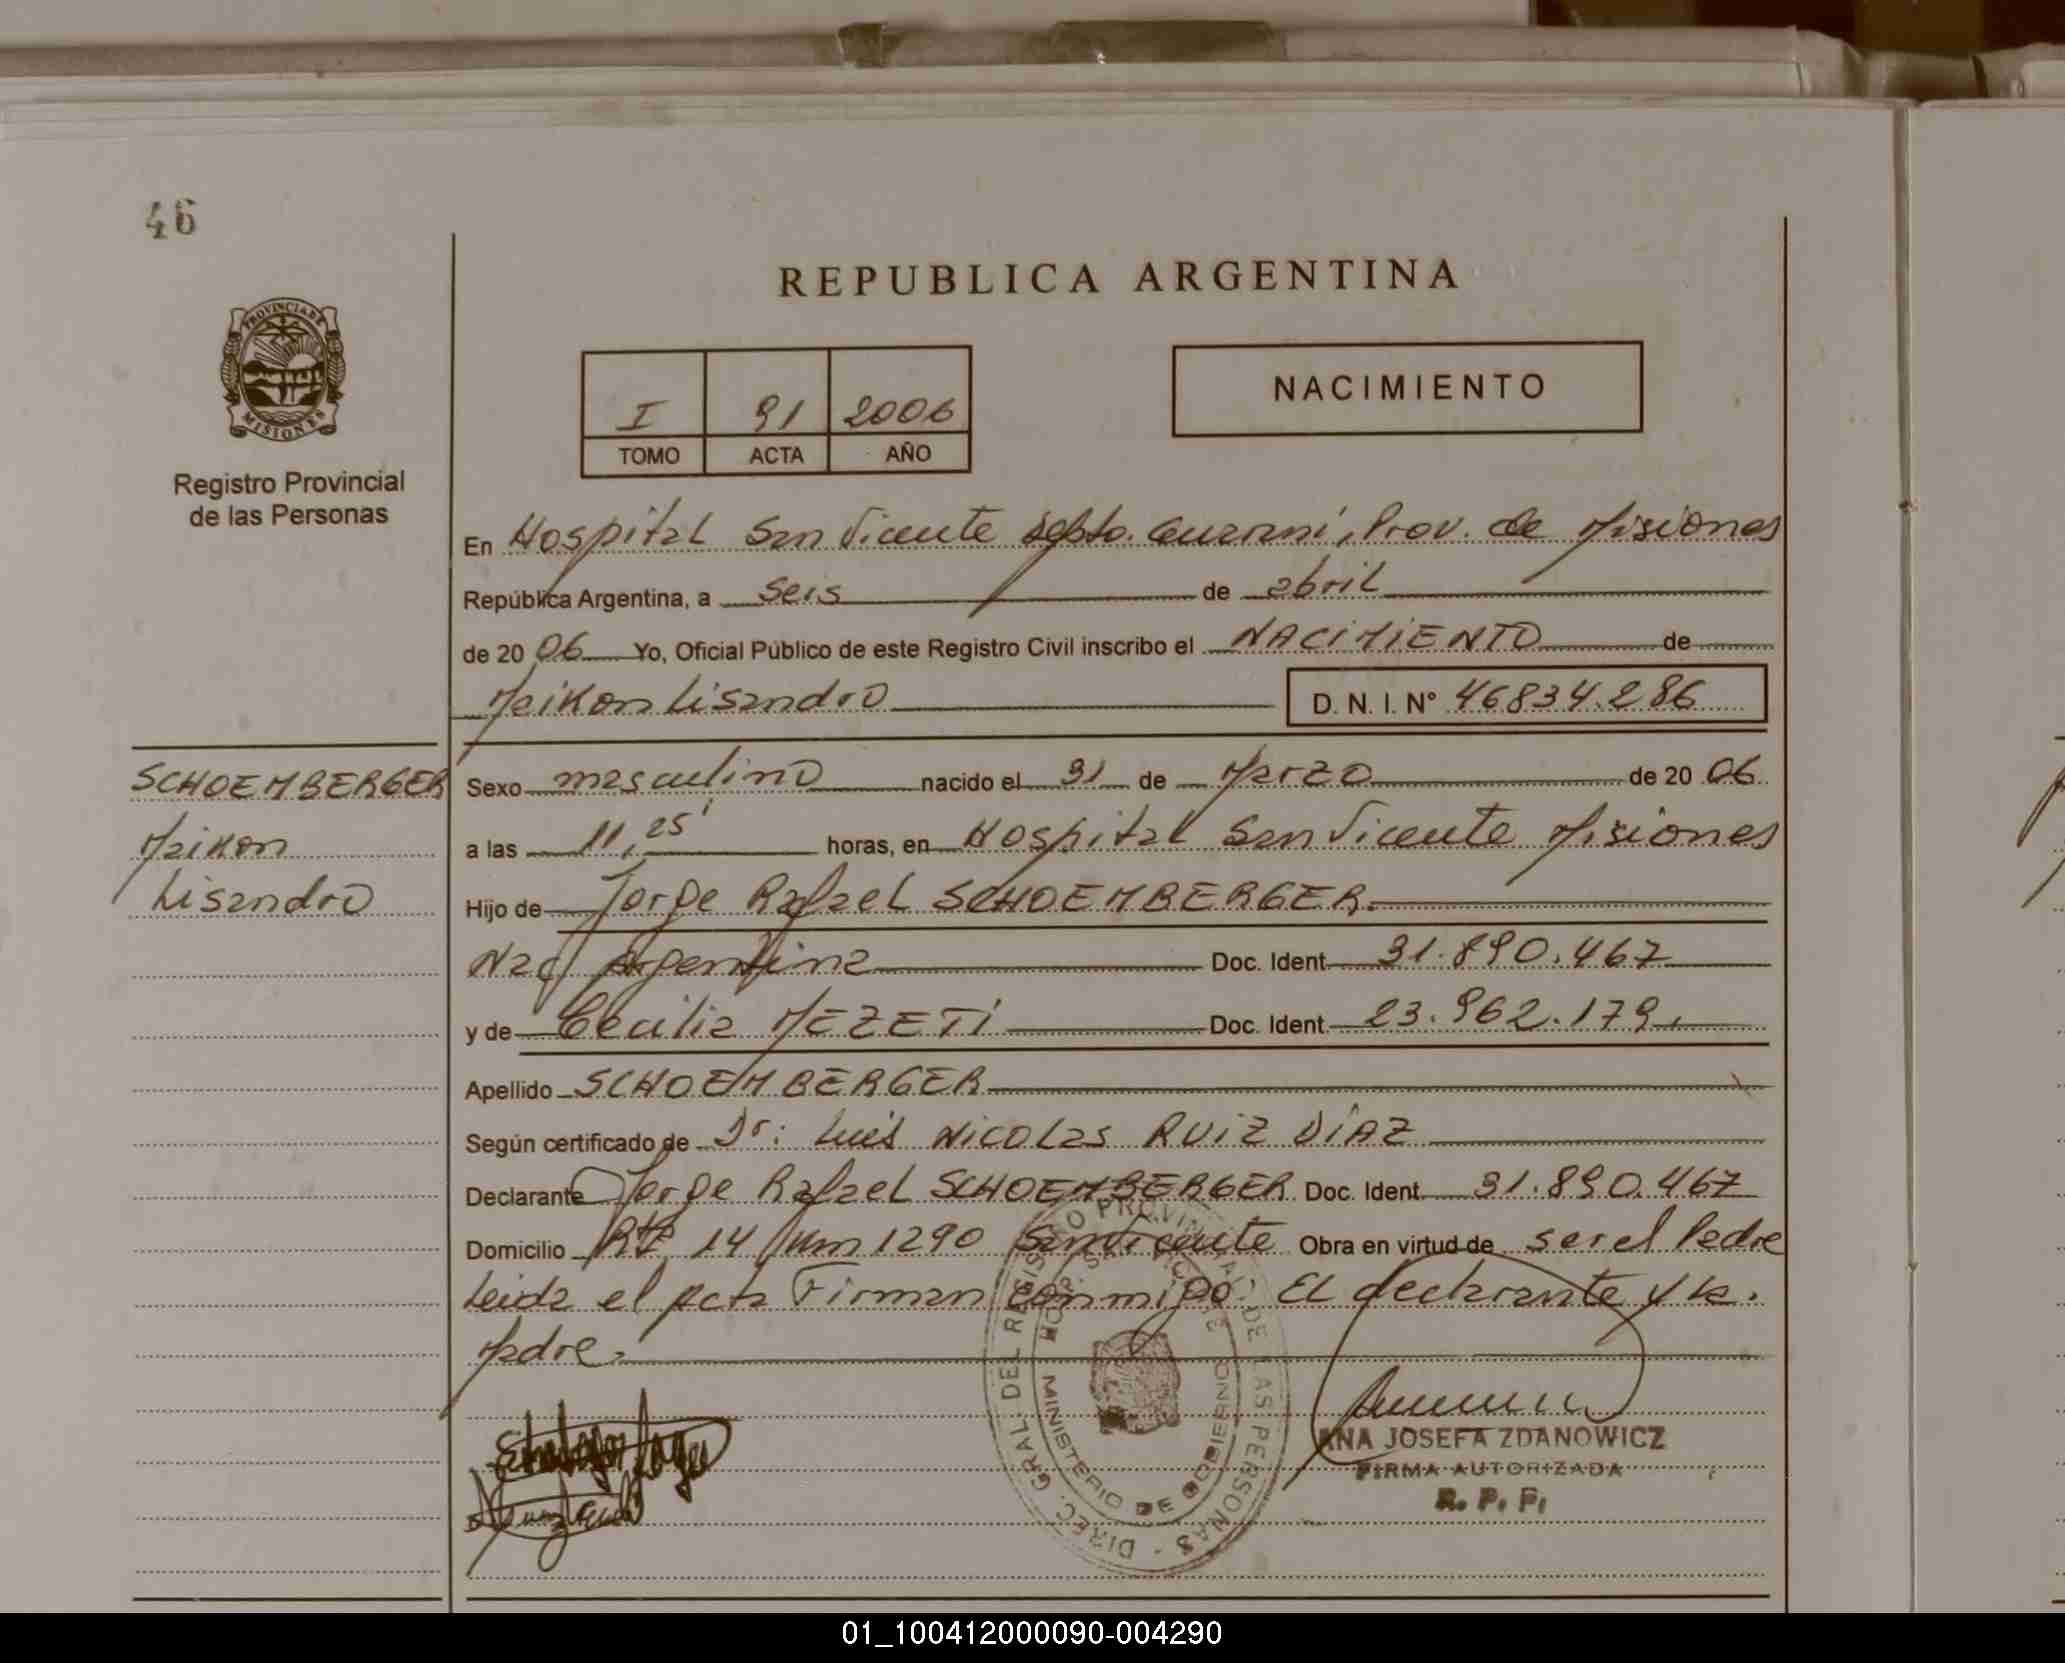 46
REPUBLICA ARGENTINA
PROVINCIA DE
MISIONES
Registro Provincial
de las Personas
I 91 2006
TOMO ACTA AÑO
NACIMIENTO
En Hospital San Vicente Depto. Guaraní, Prov. de Misiones
República Argentina, a seis de abril
de 20 06 Yo, Oficial Público de este Registro Civil inscribo el NACIMIENTO de
Maikon Lisandro D. N. I. Nº 46834.286
SCHOEMBERGER
Maikon
Lisandro
Sexo masculino nacido el 31 de Marzo de 20 06
a las 11,25' horas, en Hospital San Vicente Misiones
Hijo de Jorge Rafael SCHOEMBERGER.
Nac Argentina Doc. Ident 31.890.467
y de Cecilia MEZETI Doc. Ident 23.962.179.
Apellido SCHOEMBERGER
Según certificado de Dr: Luis Nicolas RUIZ DÍAZ
Declarante Jorge Rafael SCHOEMBERGER Doc. Ident 31.890.467
Domicilio 14 Km 1290 San Vicente Obra en virtud de ser el Padre
Leida el acta Firman conmigo: El declarante y la
Madre.
DIREC. GRAL. DEL REGISTRO PROVINCIAL DE LAS PERSONAS
MINISTERIO DE GOBIERNO
ANA JOSEFA ZDANOWICZ
FIRMA AUTORIZADA
R. P. P.
01_100412000090-004290